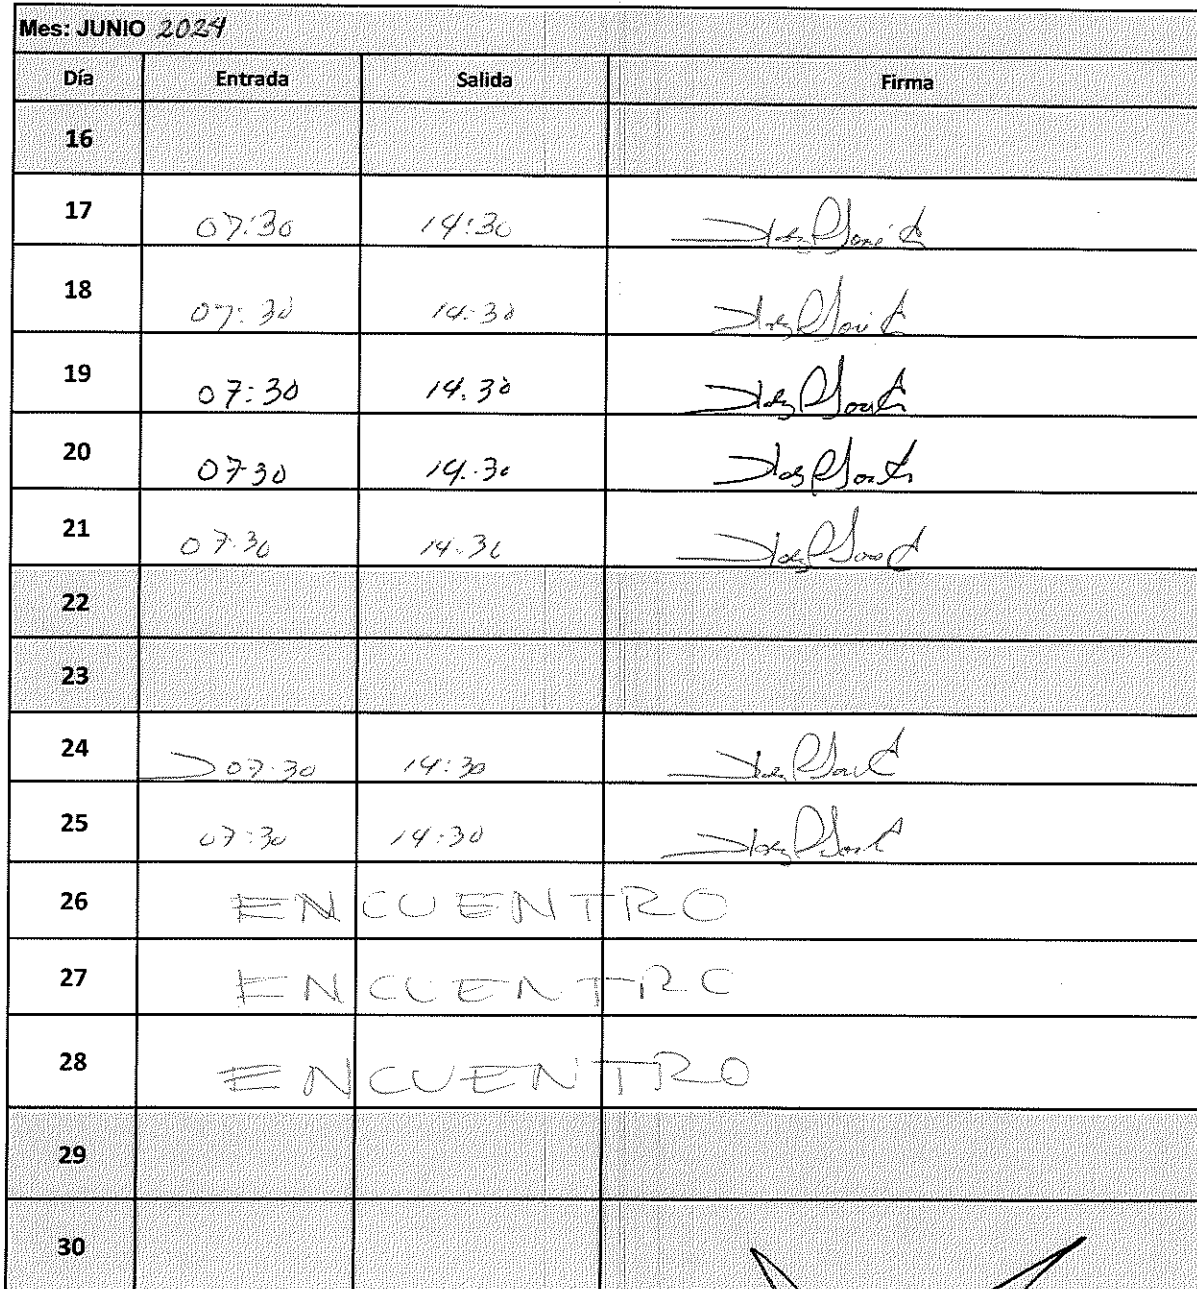 Mes: JUNIO 2024
Día Entrada Salida Firma
16
17 07:30 14:30
18 07:30 14:30
19 07:30 14:30
20 07:30 14:30
21 07:30 14:30
22
23
24 07:30 14:30
25 07:30 14:30
26 ENCUENTRO
27 ENCUENTRO
28 ENCUENTRO
29
30